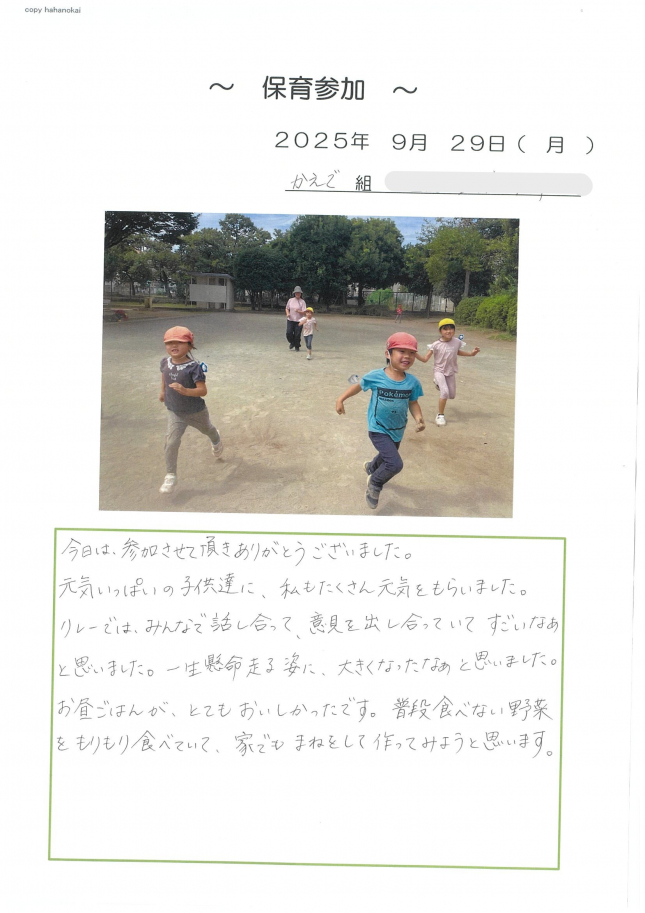 copy hahanokai
～　保育参加　～
２０２５年　９月　２９日（　月　）
かえで　組
Pokémon
今日は、参加させて頂きありがとうございました。
元気いっぱいの子供達に、私もたくさん元気をもらいました。
リレーでは、みんなで話し合って、意見を出し合っていて すごいなぁ
と思いました。一生懸命走る姿に、大きくなったなぁと思いました。
お昼ごはんが、とてもおいしかったです。普段食べない野菜
をもりもり食べていて、家でもまねをして作ってみようと思います。